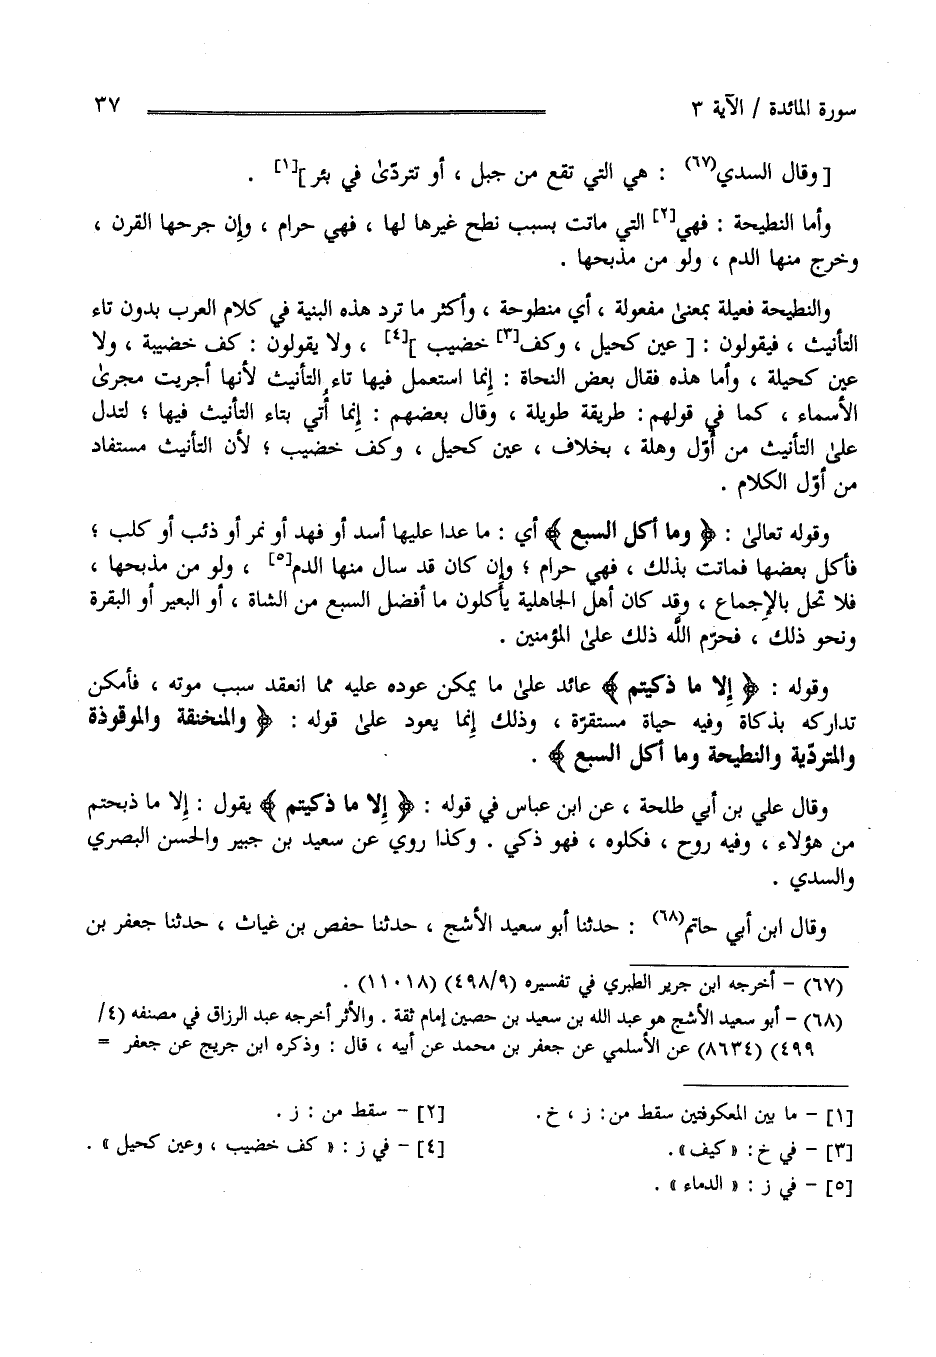 سورة المائدة / الآية ٣ ٣٧
[ وقال السدي(٦٧) : هي التي تقع من جبل ، أو تتردّىٰ في بئر ][١] .
وأما النطيحة : فهي[٢] التي ماتت بسبب نطح غيرها لها ، فهي حرام ، وإن جرحها القرن ،
وخرج منها الدم ، ولو من مذبحها .
والنطيحة فعيلة بمعنىٰ مفعولة ، أي منطوحة ، وأكثر ما ترد هذه البنية في كلام العرب بدون تاء
التأنيث ، فيقولون : [ عين كحيل ، وكف[٣] خضيب ][٤] ، ولا يقولون : كف خضيبة ، ولا
عين كحيلة ، وأما هذه فقال بعض النحاة : إنما استعمل فيها تاء التأنيث لأنها أجريت مجرىٰ
الأسماء ، كما في قولهم : طريقة طويلة ، وقال بعضهم : إنما أُتي بتاء التأنيث فيها ؛ لتدل
علىٰ التأنيث من أول وهلة ، بخلاف ، عين كحيل ، وكف خضيب ؛ لأن التأنيث مستفاد
من أوّل الكلام .
وقوله تعالىٰ : ﴿ وما أكل السبع ﴾ أي : ما عدا عليها أسد أو فهد أو نمر أو ذئب أو كلب ؛
فأكل بعضها فماتت بذلك ، فهي حرام ؛ وإن كان قد سال منها الدم[٥] ، ولو من مذبحها ،
فلا تحل بالإجماع ، وقد كان أهل الجاهلية يأكلون ما أفضل السبع من الشاة ، أو البعير أو البقرة
ونحو ذلك ، فحرّم اللَّه ذلك علىٰ المؤمنين .
وقوله : ﴿ إلا ما ذكيتم ﴾ عائد علىٰ ما يمكن عوده عليه مما انعقد سبب موته ، فأمكن
تداركه بذكاة وفيه حياة مستقرّة ، وذلك إنما يعود علىٰ قوله : ﴿ والمنخنقة والموقوذة
والمتردّية والنطيحة وما أكل السبع ﴾ .
وقال علي بن أبي طلحة ، عن ابن عباس في قوله : ﴿ إلا ما ذكيتم ﴾ يقول : إلا ما ذبحتم
من هؤلاء ، وفيه روح ، فكلوه ، فهو ذكي . وكذا روي عن سعيد بن جبير والحسن البصري
والسدي .
وقال ابن أبي حاتم(٦٨) : حدثنا أبو سعيد الأشج ، حدثنا حفص بن غياث ، حدثنا جعفر بن
(٦٧) – أخرجه ابن جرير الطبري في تفسيره (٤٩٨/٩) (١١٠١٨) .
(٦٨) – أبو سعيد الأشج هو عبد الله بن سعيد بن حصين إمام ثقة . والأثر أخرجه عبد الرزاق في مصنفه (٤/
٤٩٩) (٨٦٣٤) عن الأسلمي عن جعفر بن محمد عن أبيه ، قال : وذكره ابن جريج عن جعفر =
[١] – ما بين المعكوفتين سقط من : ز ، خ . [٢] – سقط من : ز .
[٣] – في خ : « كيف» . [٤] – في ز : « كف خضيب ، وعين كحيل » .
[٥] – في ز : « الدماء » .